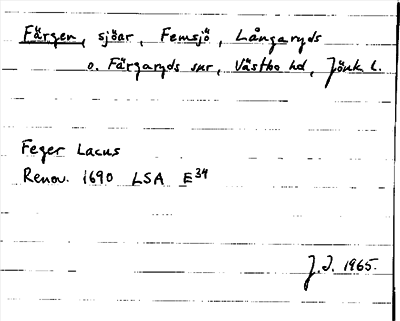 Färgen, sjöar, Femsjö, Långaryds
o. Färgaryds snr, Västbo hd, Jönk l.
Feger Lacus
Renov. 1690 LSA E34
J.I. 1965.